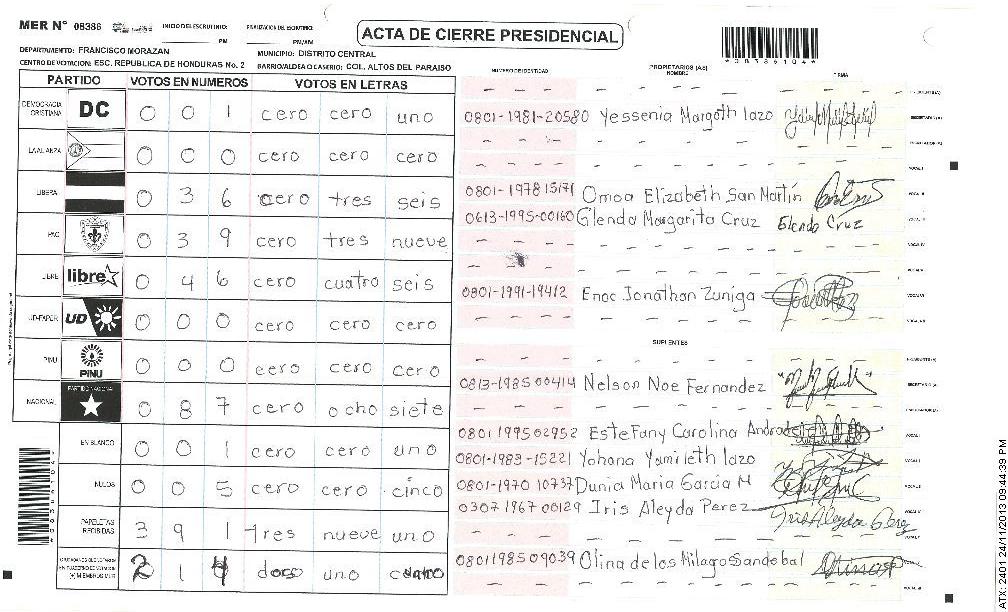 MER N° 08386 INICIO DEL ESCRUTINIO: PM FINALIZACION DEL ESCRUTINIO: PM/AM ACTA DE CIERRE PRESIDENCIAL
DEPARTAMENTO: FRANCISCO MORAZAN MUNICIPIO: DISTRITO CENTRAL *08386104*
CENTRO DE VOTACION: ESC. REPUBLICA DE HONDURAS No. 2 BARRIO/ALDEA O CASERIO: COL. ALTOS DEL PARAISO
PARTIDO VOTOS EN NUMEROS VOTOS EN LETRAS
DEMOCRACIA CRISTIANA DC 0 0 1 cero cero uno
LA ALIANZA 0 0 0 cero cero cero
LIBERA 0 3 6 cero tres seis
PAC 0 3 9 cero tres nueve
LIBRE libre 0 4 6 cero cuatro seis
UD-FAPER UD 0 0 0 cero cero cero
PINU PINU 0 0 0 cero cero cero
NACIONAL PARTIDO NACIONAL 0 8 7 cero ocho siete
EN BLANCO 0 0 1 cero cero uno
NULOS 0 0 5 cero cero cinco
PAPELETAS RECIBIDAS 3 9 1 tres nueve uno
2 1 4 uno
NUMERO DE IDENTIDAD PROPIETARIOS (AS) NOMBRE FIRMA
0801-1981-20580 Yessenia Margoth lazo SECRETARIO (A)
VOCAL I
0801-197815171 Omoa Elizabeth San Martín VOCAL II
0613-1995-00160 Glenda Margarita Cruz Glenda Cruz VOCAL III
VOCAL IV
VOCAL V
0801-1991-19412 Enoc Jonathan Zuniga VOCAL VI
VOCAL VII
SUPLENTES
0813-1985 00414 Nelson Noe Fernandez SECRETARIO (A)
0801199502952 Estefany Carolina Andrade VOCAL I
0801-1983-15221 Yohana Yamileth lazo
0801-1970 10737 Dunia Maria Garcia M
0307 1967 00129 Iris Aleyda Perez Iris Aleyda Perez
0801198509039 Olina de los Milagro Sandobal
ATX: 2401 24/11/2013 09:44:39 PM